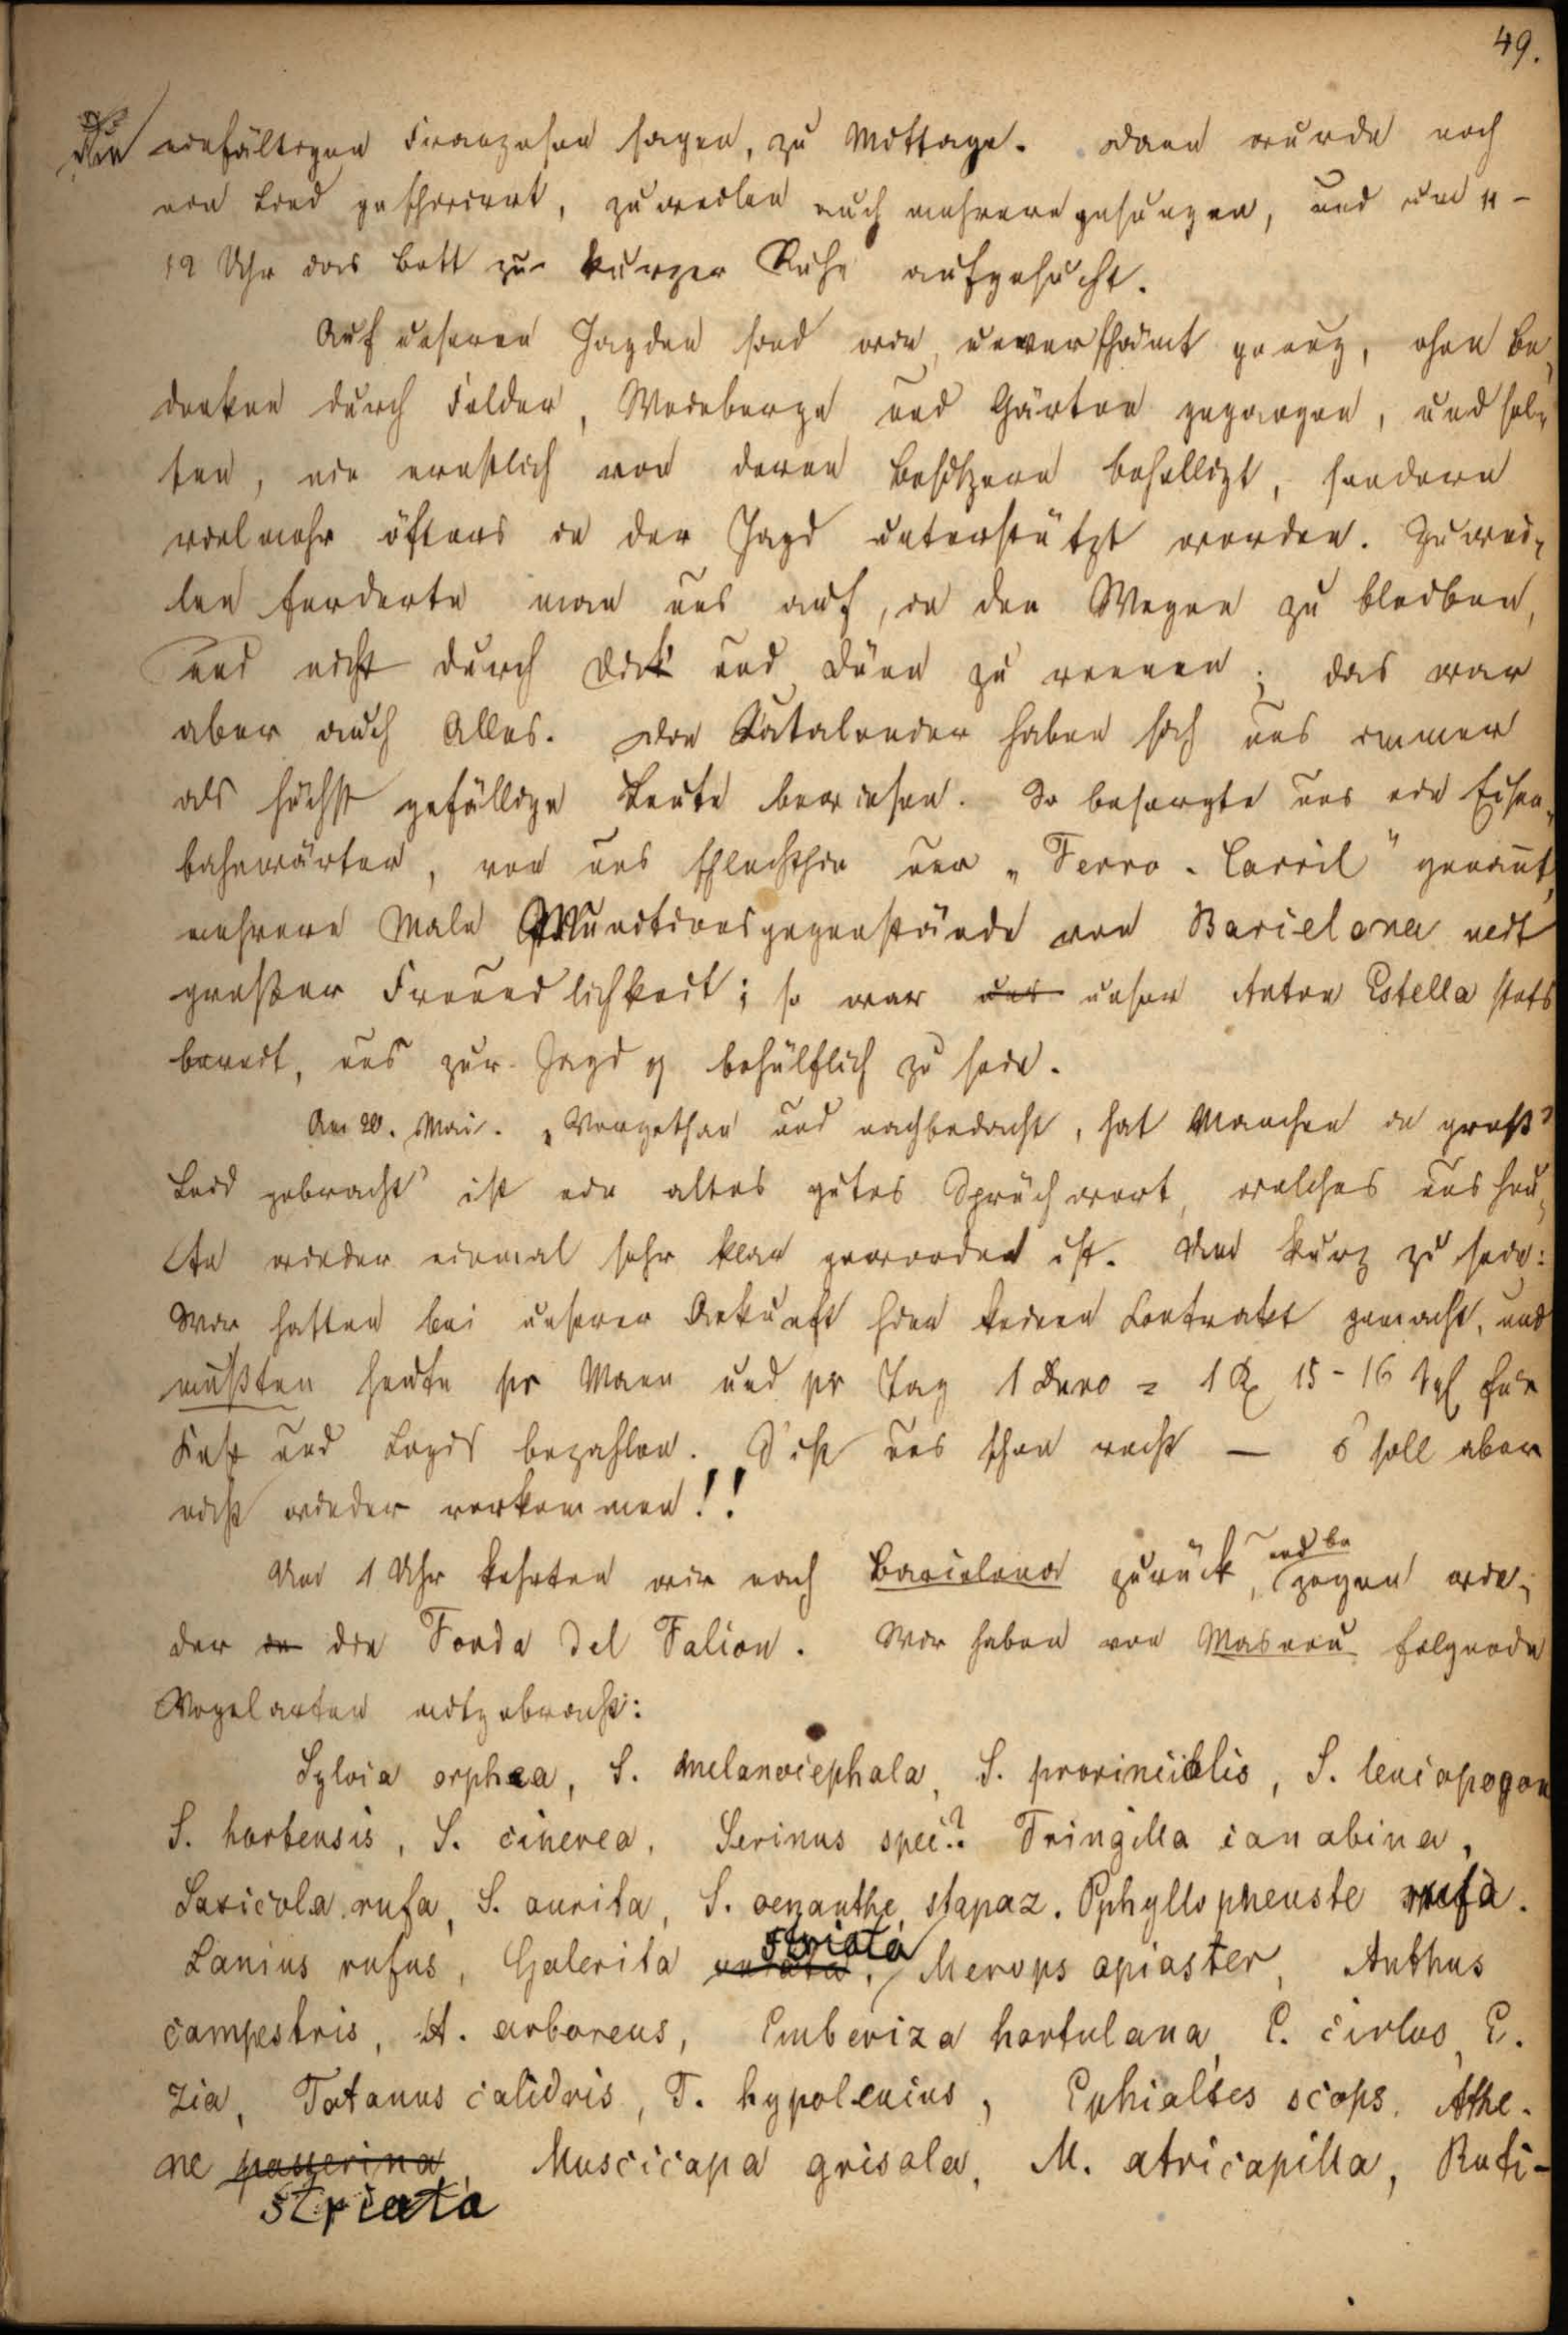 49.
die einfältigen Franzosen sagen, zu Mittage. Dann wurde noch
ein Lied geschmirrt, zuweilen auch mehrere gesungen, und um 11-
12 Uhr das Bett zur kurzer Ruhe aufgesucht.
Auf unseren Jagden sind wir, unverschämt genug, ohne Be-
denken durch Felder, Weinberge und Gärten gegangen, und sel-
ten, nie ernstlich von deren Besitzern behelligt, sondern
vielmehr öfters in der Jagd unterstützt worden. Zuwei-
len forderte man uns auf, in den Wegen zu bleiben,
und nicht durch Dick und Dünn zu rennen; das war
aber auch Alles. Die Katalonier haben sich uns immer
als höchst gefällige Leute bewiesen. So besorgte uns ein Eisen-
bahnwärter, von uns schlechthin nur „Ferro-Carril" genannt,
mehrere Male Munitionsgegenstände von Barcelona mit
großer Freundlichkeit; so war uns unser Anton Estella stets
bereit, uns zur Jagd behülflich zu sein.
Am 20. Mai. „Vorgethan und nachbedacht, hat Manchen in groß'
Leid gebracht" ist ein altes gutes Sprüchwort, welches uns heu-
te wieder einmal sehr klar geworden ist. Um kurz zu sein:
Wir hatten bei unserer Ankunft hier keinen Contrakt gemacht, und
mußten heute pr Mann und pr Tag 1 Duro = 1 Rx 15-16 Sgl für
Kost und Logis bezahlen. S'ist uns schon recht — s'soll aber
nicht wieder vorkommen!!
Um 1 Uhr kehrten wir nach Barcelona zurück, und be
zogen wie-
der in die Fonda del Falcon. Wir haben von Masnou folgende
Vogelarten mitgebracht:
Sylvia orphea, S. melanocephala, S. provincialis, S. leucopogon
S. hortensis, S. cinerea, Serinus spec.? Fringilla canabina,
Saxicola rufa, S. aurita, S. oenanthe, stapaz. Pphyllopneuste rufa.
Lanius rufus, Galerita striata, Merops apiaster, Anthus
campestris, A. arboreus, Emberiza hortulana, E. cirlus, E.
zia, Totanus calidris, T. hypoleucus, Ephialtes scops. Athe-
ne passerina, Muscicapa grisola, M. atricapilla, Ruti-
striata